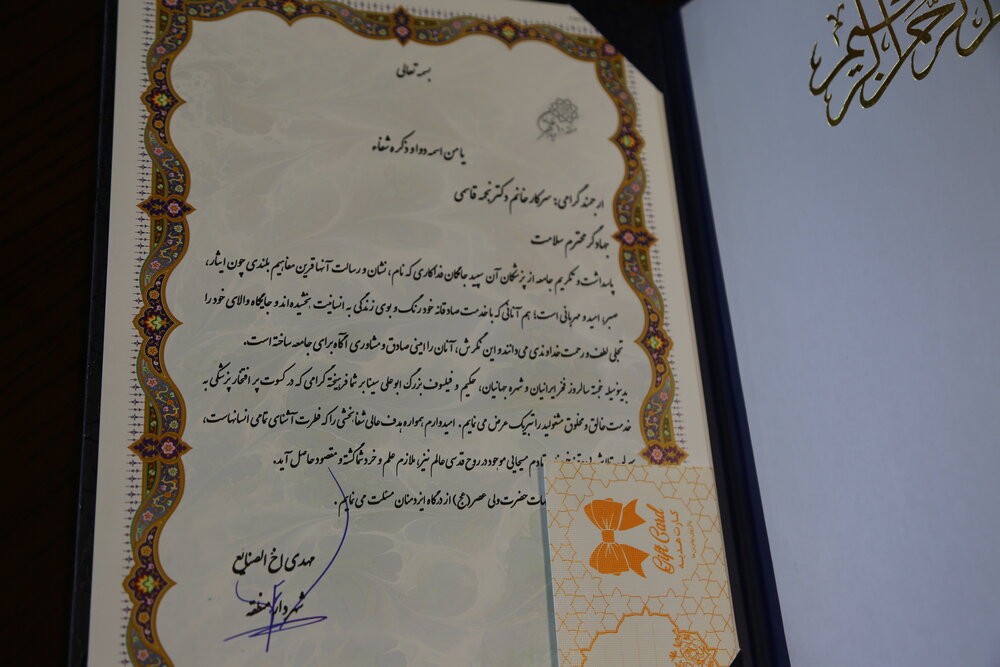 بسمه تعالی
یا من اسمه دواء و ذکره شفاء
ارجمند گرامی؛ سرکار خانم دکتر نجمه قاسمی
جهادگر محترم سلامت
پاسداشت و تکریم جامعه از پزشکان آن سپید جامگان فداکاری که نام، نشان و رسالت آنها قرین مفاهیم بلندی چون ایثار،
صبر، امید و مهربانی است؛ هم آنانی که با خدمت صادقانه خود رنگ و بوی زندگی به انسانیت بخشیده‌اند و جایگاه والای خود را
تجلی لطف و رحمت خداوندی می‌دانند و این نگرش، آنان را امینی صادق و مشاوری آگاه برای جامعه ساخته است.
بدینوسیله خجسته سالروز فخر ایرانیان و شهره جهانیان، حکیم و فیلسوف بزرگ ابوعلی سینا بر شما فرهیخته گرامی که در کسوت پر افتخار پزشکی به
خدمت خالق و مخلوق مشغولید را تبریک عرض می نمایم. امیدوارم همواره هدف عالی شفابخشی را که فطرت آشنای تمامی انسانهاست،
تا دم مسیحایی موجود در روح قدسی عالم نیز، ملازم علم و خرد شما گشته و مقصود حاصل آید.
حضرت ولی عصر (عج) از درگاه ایزد منان مسئلت می نمایم.
مهدی اخ الصنایع
شهردار منطقه
Gift Card
کارت هدیه
الرحمن الرحیم